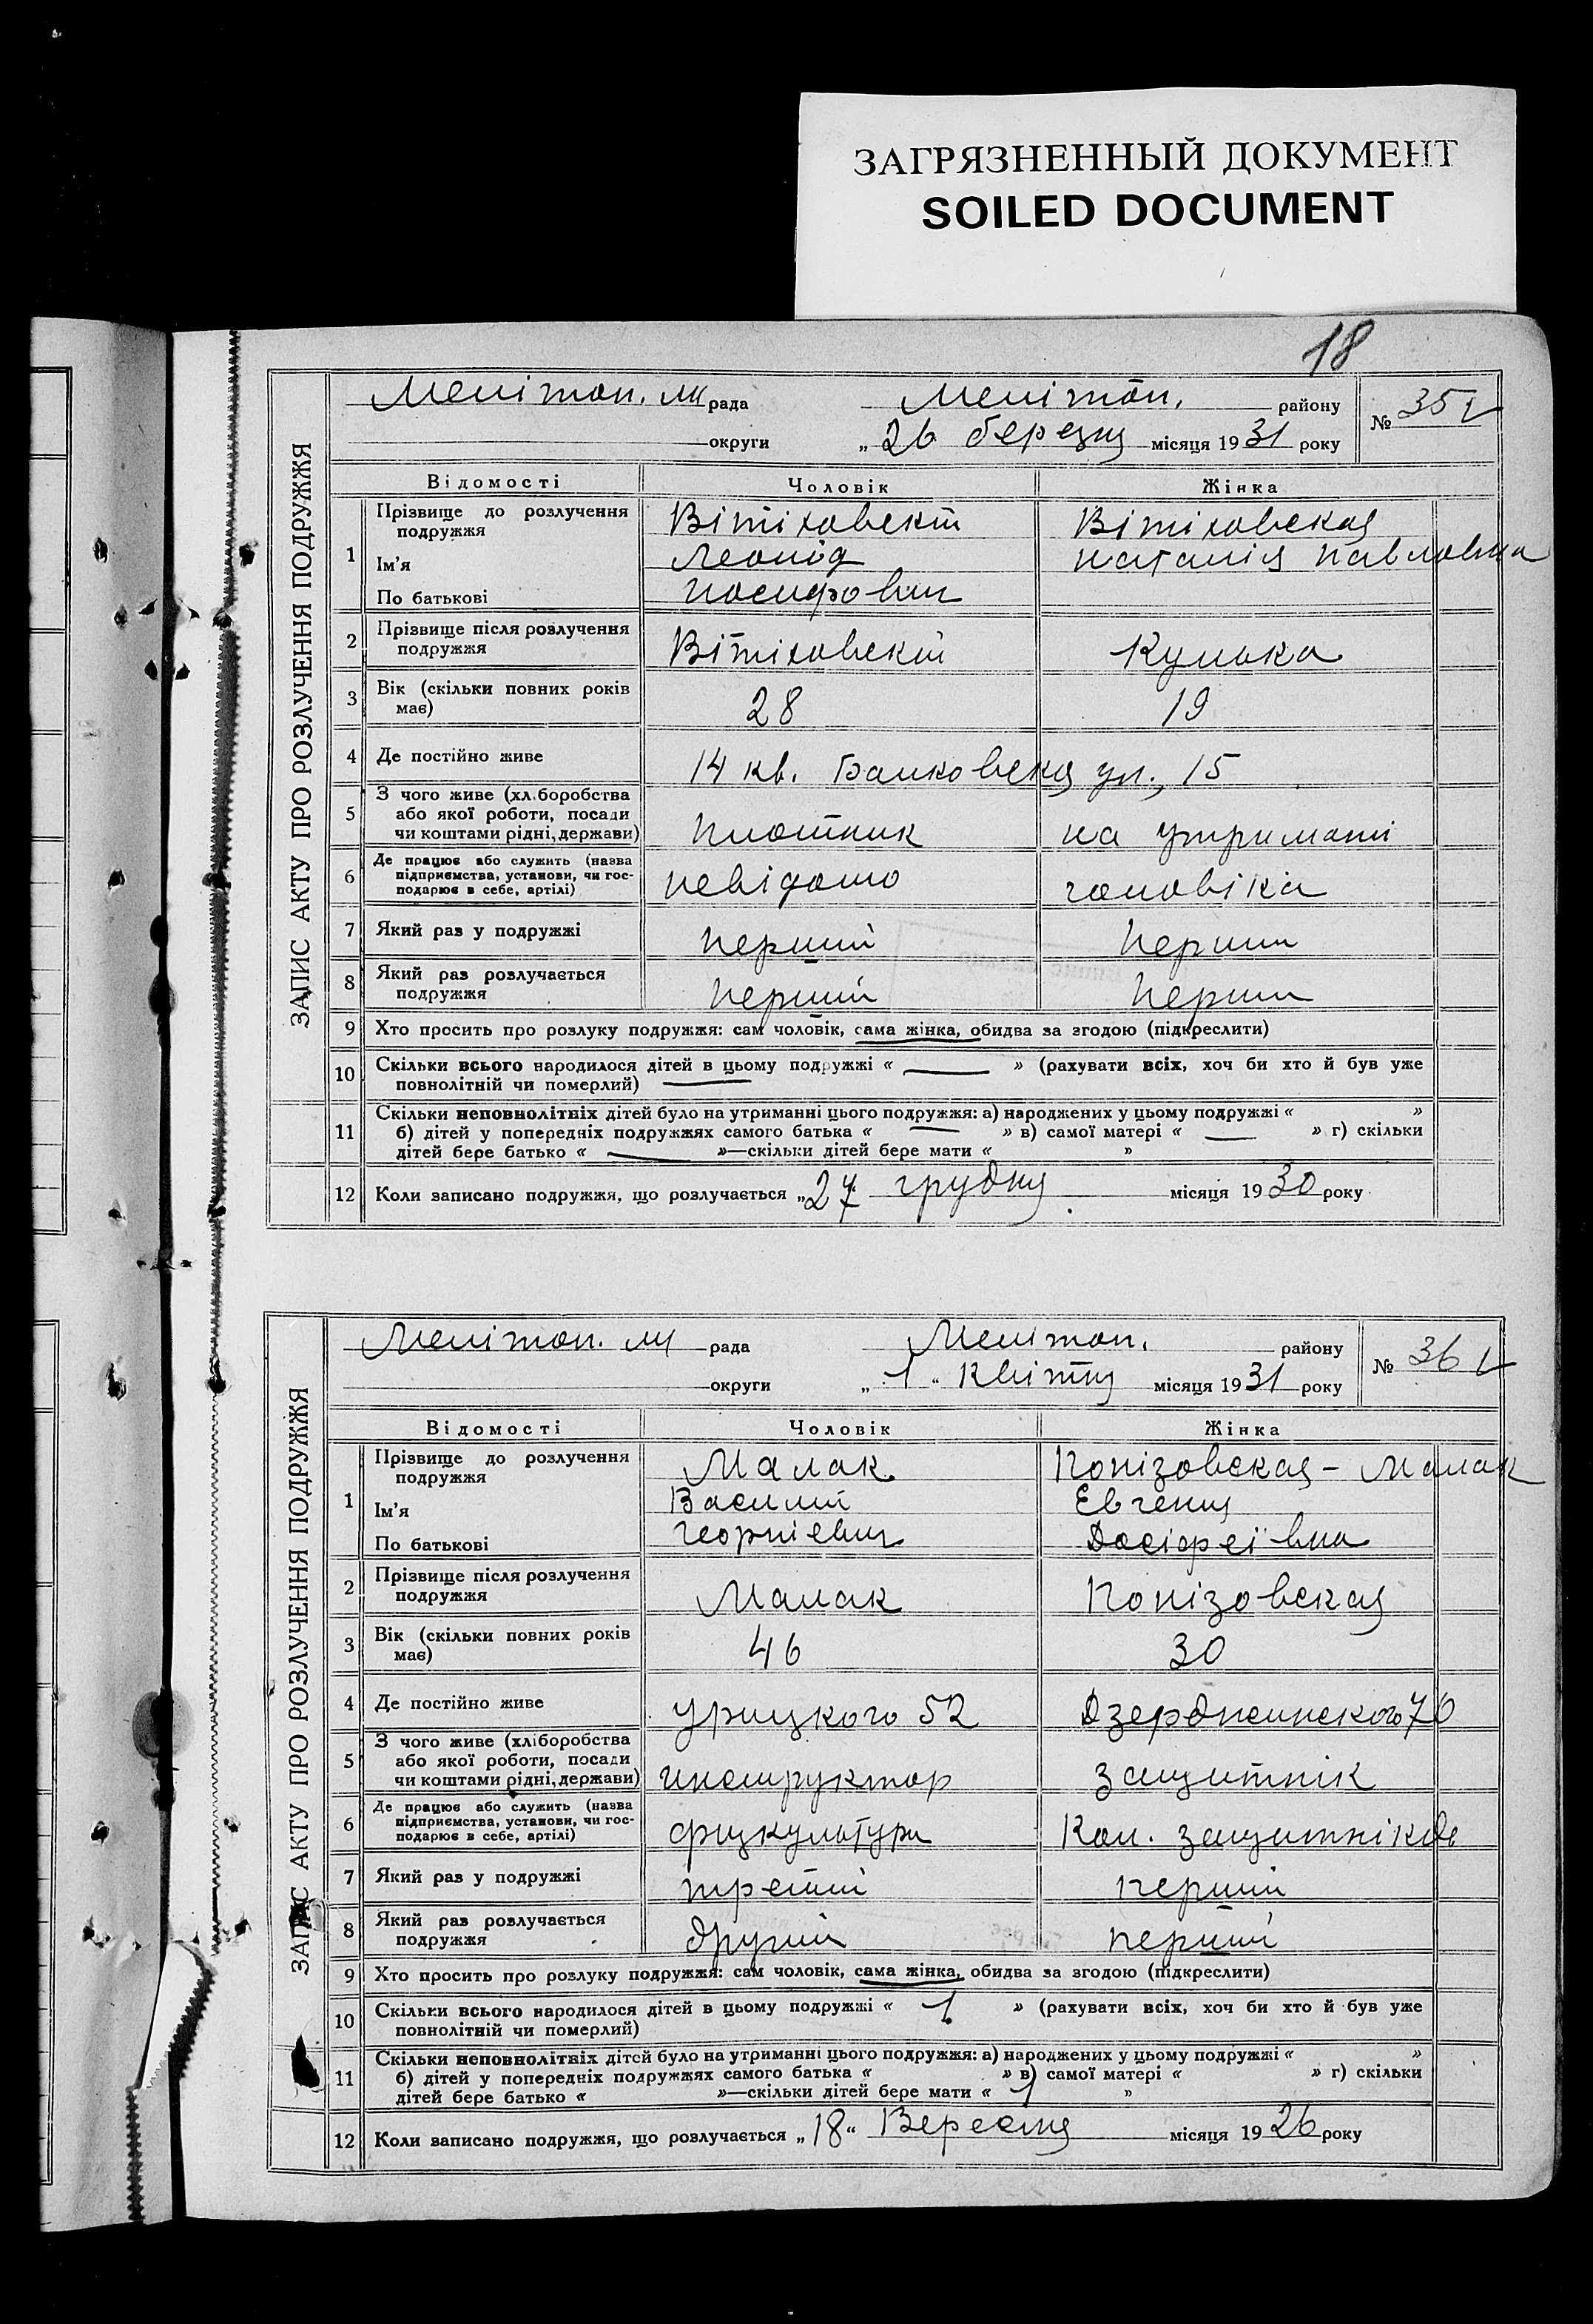 ЗАГРЯЗНЕННЫЙ ДОКУМЕНТ
SOILED DOCUMENT
18
ЗАПИС АКТУ ПРО РОЗЛУЧЕННЯ ПОДРУЖЖЯ
Мелітоп. рада Мелітоп. району № 35
округи „26 березня місяця 1931 року
Відомості Чоловік Жінка
1 Прізвище до розлучення Вітіховскій Вітіховская
подружжя
Ім'я Леонід Наталія Павловна
По батькові Иосифович
2 Прізвище після розлучення Вітіховскій Кулька
подружжя
3 Вік (скільки повних років 28 19
має)
4 Де постійно живе 14 кв. Банковска ул., 15
5 З чого живе (хліборобства
або якої роботи, посади
чи коштами рідні, держави) плотник на утриманні
6 Де працює або служить (назва
підприємства, установи, чи гос-
подарює в себе, артілі) невідомо чоловіка
7 Який раз у подружжі перший перший
8 Який раз розлучається
подружжя перший перший
9 Хто просить про розлуку подружжя: сам чоловік, сама жінка, обидва за згодою (підкреслити)
10 Скільки всього народилося дітей в цьому подружжі « — » (рахувати всіх, хоч би хто й був уже
повнолітній чи померлий) —
11 Скільки неповнолітніх дітей було на утриманні цього подружжя: а) народжених у цьому подружжі « »
б) дітей у попередніх подружжях самого батька « — » в) самої матері « — » г) скільки
дітей бере батько « — »—скільки дітей бере мати « »
12 Коли записано подружжя, що розлучається „27 грудня місяця 1930 року
ЗАПИС АКТУ ПРО РОЗЛУЧЕННЯ ПОДРУЖЖЯ
Мелітоп. рада Мелітоп. району № 36
округи „1" Квітня місяця 1931 року
Відомості Чоловік Жінка
1 Прізвище до розлучення Малак Понізовская - Малак
подружжя
Ім'я Василий Евгения
По батькові Георгіевич Досіфеївна
2 Прізвище після розлучення
подружжя Малак Понізовская
3 Вік (скільки повних років 46 30
має)
4 Де постійно живе Урицкого 52 Дзержинского 70
5 З чого живе (хліборобства
або якої роботи, посади
чи коштами рідні, держави) инструктор защитнік
6 Де працює або служить (назва
підприємства, установи, чи гос-
подарює в себе, артілі) фізкультури Кол. защитніков
7 Який раз у подружжі третій перший
8 Який раз розлучається
подружжя другий перший
9 Хто просить про розлуку подружжя: сам чоловік, сама жінка, обидва за згодою (підкреслити)
10 Скільки всього народилося дітей в цьому подружжі « 1 » (рахувати всіх, хоч би хто й був уже
повнолітній чи померлий)
11 Скільки неповнолітніх дітей було на утриманні цього подружжя: а) народжених у цьому подружжі « »
б) дітей у попередніх подружжях самого батька « » в) самої матері « » г) скільки
дітей бере батько « »—скільки дітей бере мати « 1 »
12 Коли записано подружжя, що розлучається „18" Вересня місяця 1926 року